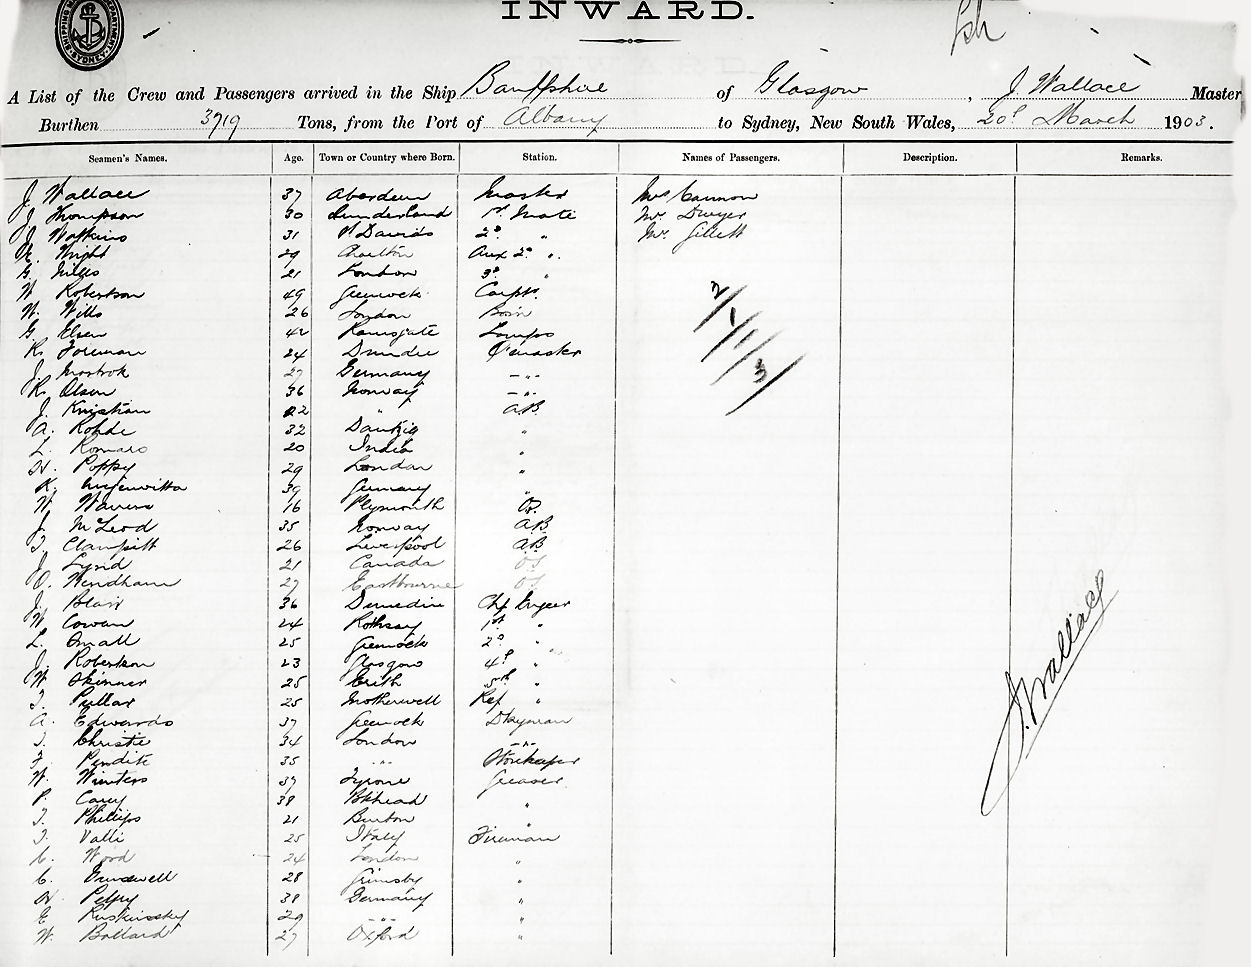 INWARD.
SHIPPING M DEPARTMENT SYDNEY
A List of the Crew and Passengers arrived in the Ship Banffshire of Glasgow, J. Wallace Master
Burthen 3719 Tons, from the Port of Albany to Sydney, New South Wales, 20th March 1903.
Seamen's Names. Age. Town or Country where Born. Station. Names of Passengers. Description. Remarks.
J. Wallace 37 Aberdeen Master Mrs Cannon
J. Thompson 30 Sunderland 1st Mate Mr. Dwyer
J. Watkins 31 St Davids 2d " Mr. Gillett
Wright 29 Charlton Aux 2d "
G. 21 London 3d "
W. Robertson 49 Greenock Carptr.
W. Wills 26 London Bosn
G. Elsen 42 Ramsgate Lamps
R. Foreman 24 Dundee Q'master
J. 27 Germany - " -
R. Olsen 36 Norway - " -
J. 22 " AB
A. Rohde 32 Dantzig "
L. Romaro 20 India "
H. Poppy 29 London "
K. 39 Germany "
W. 16 Plymouth
J. McLeod 35 Norway AB
T. Clampitt 26 Liverpool AB
J. Lynd 21 Canada OS
O. Wendham 27 Eastbourne OS
J. Blair 36 Dunedin Chf Engeer
W. Cowan 24 Rothsay 1st "
L. Small 25 Greenock 2d "
J. Robertson 23 Glasgow 4th "
W. Skinner 25 Erith 5th "
T. Pullar 25 Motherwell Ref "
A. Edwards 37 Greenock Dkeyman
T. Christie 34 London - " -
F. Pendite 35 " Storekeeper
W. Winters 39 Tyrone Greaser
P. Carey 38 B'khead "
T. Phillips 21 Burton "
T. Valli 25 Italy Fireman
C. Wood 24 London "
C. 28 Grimsby "
H. 38 Germany "
E. Ruskinsky 29 - " - "
W. Ballard 27 Oxford "
2/1/1/3
J. Wallace